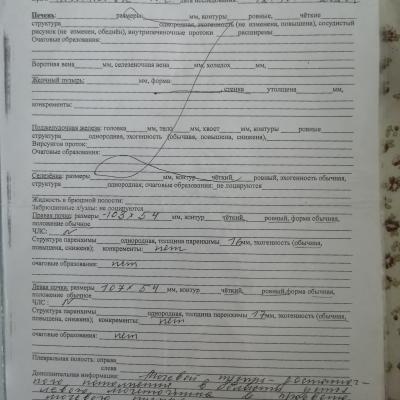 Печень: размеры мм, контуры ровные, чёткие
структура однородная, эхогенность (не изменена, повышена), сосудистый
рисунок (не изменен, обеднён), внутрипеченочные протоки расширены
Очаговые образования:
Воротная вена мм, селезеночная вена мм, холедох мм,
Желчный пузырь: мм, форма
стенка утолщена мм,
конкременты:
Поджелудочная железа: головка мм, тело мм, хвост мм, контуры ровные,
структура однородная, эхогенность (обычная, повышена, снижена),
Вирсунгов проток:
Очаговые образования:
Селезёнка: размеры мм, контур чёткий, ровный, эхогенность обычная,
структура однородная; очаговые образования: не лоцируются
Жидкость в брюшной полости:
Забрюшинные л/узлы: не лоцируются
Правая почка: размеры 103 х 54 мм, контур чёткий, ровный, форма обычная,
положение обычное
ЧЛС: N
Структура паренхимы однородная, толщина паренхимы 16 мм, эхогенность (обычная,
повышена, снижена); конкременты: нет
очаговые образования: нет
Левая почка: размеры 107 х 54 мм, контур чёткий, ровный, форма обычная,
положение обычное
ЧЛС: N
Структура паренхимы однородная, толщина паренхимы 17 мм, эхогенность (обычная,
повышена, снижена); конкременты: нет
очаговые образования: нет
Плевральная полость: справа
слева
Дополнительная информация: Мочевой пузырь - достаточ-
ного наполнения в области устья
левого мочеточника в просвете
мочевого